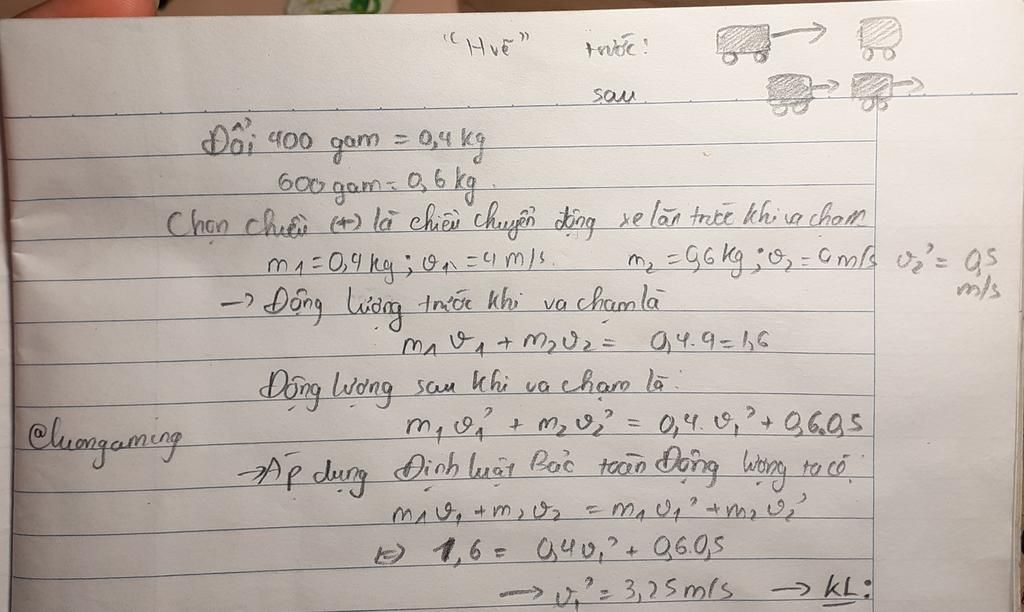 "H vẽ" trước:
sau
Đổi 400 gam = 0,4 kg
600 gam = 0,6 kg.
Chọn chiều (+) là chiều chuyển động xe lăn trước khi va chạm
m1 = 0,4 kg; v1 = 4 m/s. m2 = 0,6 kg; v2 = 0 m/s v2' = 0,5 m/s
→ Động lượng trước khi va chạm là
m1 v1 + m2 v2 = 0,4.4 = 1,6
Động lượng sau khi va chạm là:
m1 v1' + m2 v2' = 0,4. v1' + 0,6.0,5
@luongaming
→ Áp dụng Định luật Bảo toàn Động lượng ta có:
m1 v1 + m2 v2 = m1 v1' + m2 v2'
⇔ 1,6 = 0,4 v1' + 0,6.0,5
→ v1' = 3,25 m/s → KL: